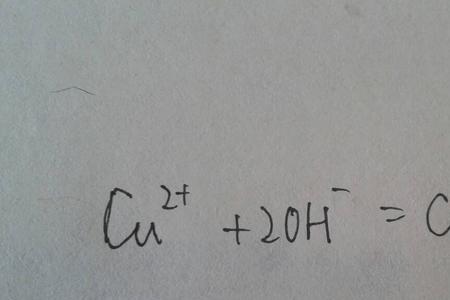 Cu²⁺ + 2OH⁻ = C